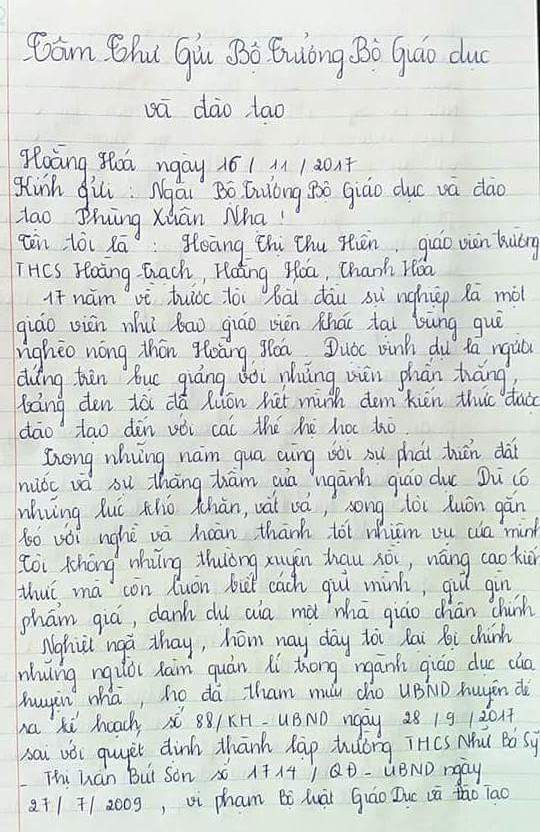 Tâm Thư Gửi Bộ Trưởng Bộ Giáo dục
và đào tạo
Hoằng Hoá ngày 16 / 11 / 2017
Kính gửi : Ngài Bộ trưởng Bộ Giáo dục và đào
tạo Phùng Xuân Nhạ !
Tên tôi là : Hoàng Thị Thu Hiền , giáo viên trường
THCS Hoằng Trạch , Hoằng Hóa , Thanh Hóa
17 năm về trước tôi bắt đầu sự nghiệp là một
giáo viên như bao giáo viên khác tại vùng quê
nghèo nông thôn Hoằng Hoá . Được vinh dự là người
đứng trên bục giảng với những viên phấn trắng ,
bảng đen tôi đã luôn hết mình đem kiến thức được
đào tạo đến với các thế hệ học trò .
Trong những năm qua cùng với sự phát triển đất
nước và sự thăng trầm của ngành giáo dục Dù có
những lúc khó khăn , vất vả , song tôi luôn gắn
bó với nghề và hoàn thành tốt nhiệm vụ của mình
Tôi không những thường xuyên trau sồi , nâng cao kiến
thức mà còn luôn biết cách giữ mình , giữ gìn
phẩm giá , danh dự của một nhà giáo chân chính
Nghiệt ngã thay , hôm nay đây tôi lại bị chính
những người làm quản lí trong ngành giáo dục của
huyện nhà , họ đã tham mưu cho UBND huyện để
ra kế hoạch số 88/KH - UBND ngày 28 / 9 / 2017
sai với quyết định thành lập trường THCS Nhữ Bá Sỹ
- Thị Trấn Bút Sơn số 1714 / QĐ - UBND ngày
27 / 7 / 2009 , vi phạm Bộ luật Giáo Dục và Đào Tạo